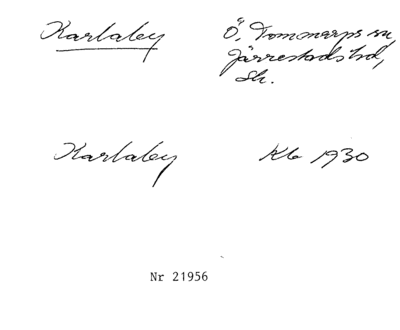 Karlaby Ö. Tommarps sn,
Järrestads hd,
Sk.
Karlaby Kb 1930
Nr 21956